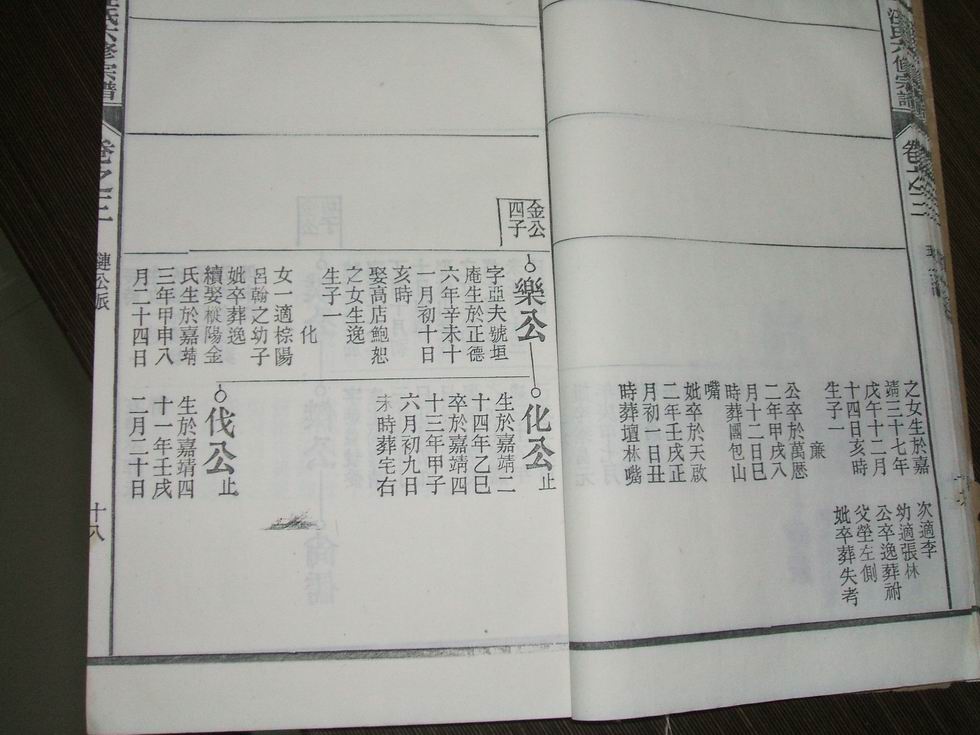 汪氏六修宗譜
卷之二
之女生於嘉
靖三十七年
戊午十二月
十四日亥時
生子一
廉
公卒於萬厯
二年甲戌八
月十二日巳
時葬團包山
嘴
妣卒於天啟
二年壬戌正
月初一日丑
時葬壇林嘴
次適李
幼適張林
公卒逸葬祔
父塋左側
妣卒葬失考
金公
四子
樂公
字亞夫號垣
庵生於正德
六年辛未十
一月初十日
亥時
娶高店鮑恕
之女生逸
生子一
化
女一適棕陽
呂翰之幼子
妣卒葬逸
續娶樅陽金
氏生於嘉靖
三年甲申八
月二十四日
化公止
生於嘉靖二
十四年乙巳
卒於嘉靖四
十三年甲子
六月初九日
未時葬宅右
伐公止
生於嘉靖四
十一年壬戌
二月二十日
氏六修宗譜
卷之二
鏈公派
十八